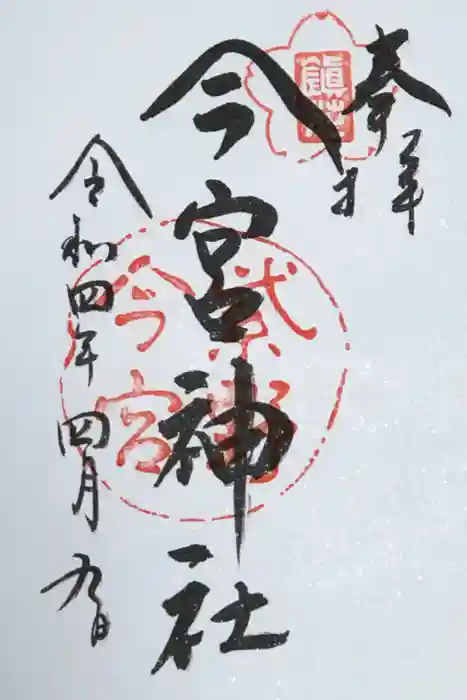 奉拝
今宮神社
令和四年四月九日
今宮